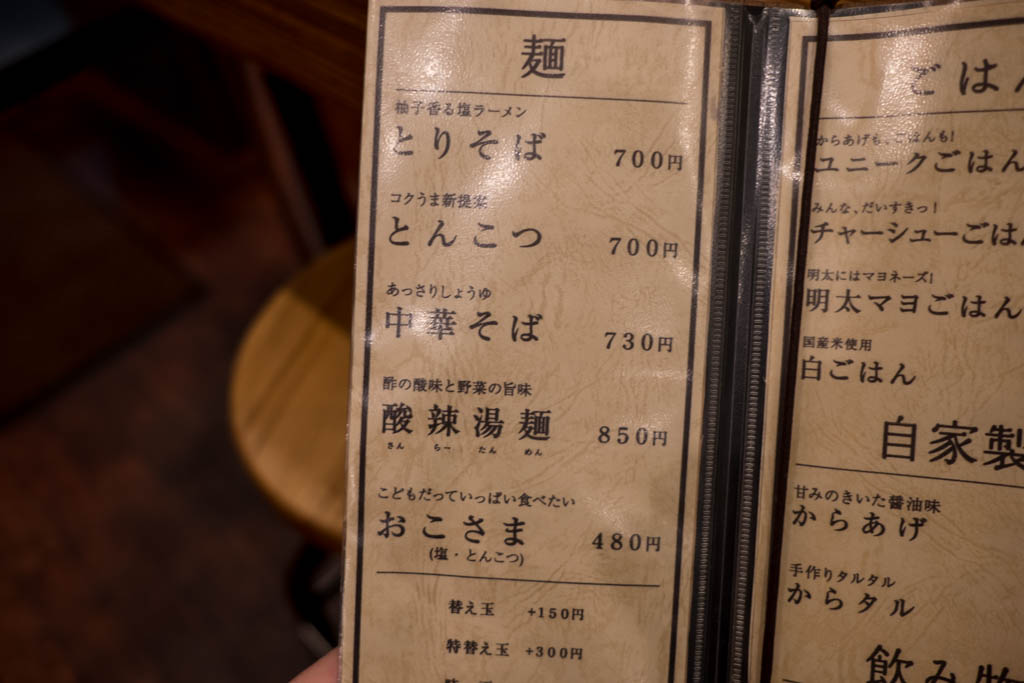 麺
柚子香る塩ラーメン
とりそば 700円
コクうま新提案
とんこつ 700円
あっさりしょうゆ
中華そば 730円
酢の酸味と野菜の旨味
酸辣湯麺 850円
さん らー たん めん
こどもだっていっぱい食べたい
おこさま 480円
(塩・とんこつ)
替え玉 +150円
特替え玉 +300円
ごは
からあげも、ごはんも!
ユニークごはん
みんな、だいすきっ!
チャーシューごは
明太にはマヨネーズ!
明太マヨごはん
国産米使用
白ごはん
自家製
甘みのきいた醤油味
からあげ
手作りタルタル
からタル
飲み物